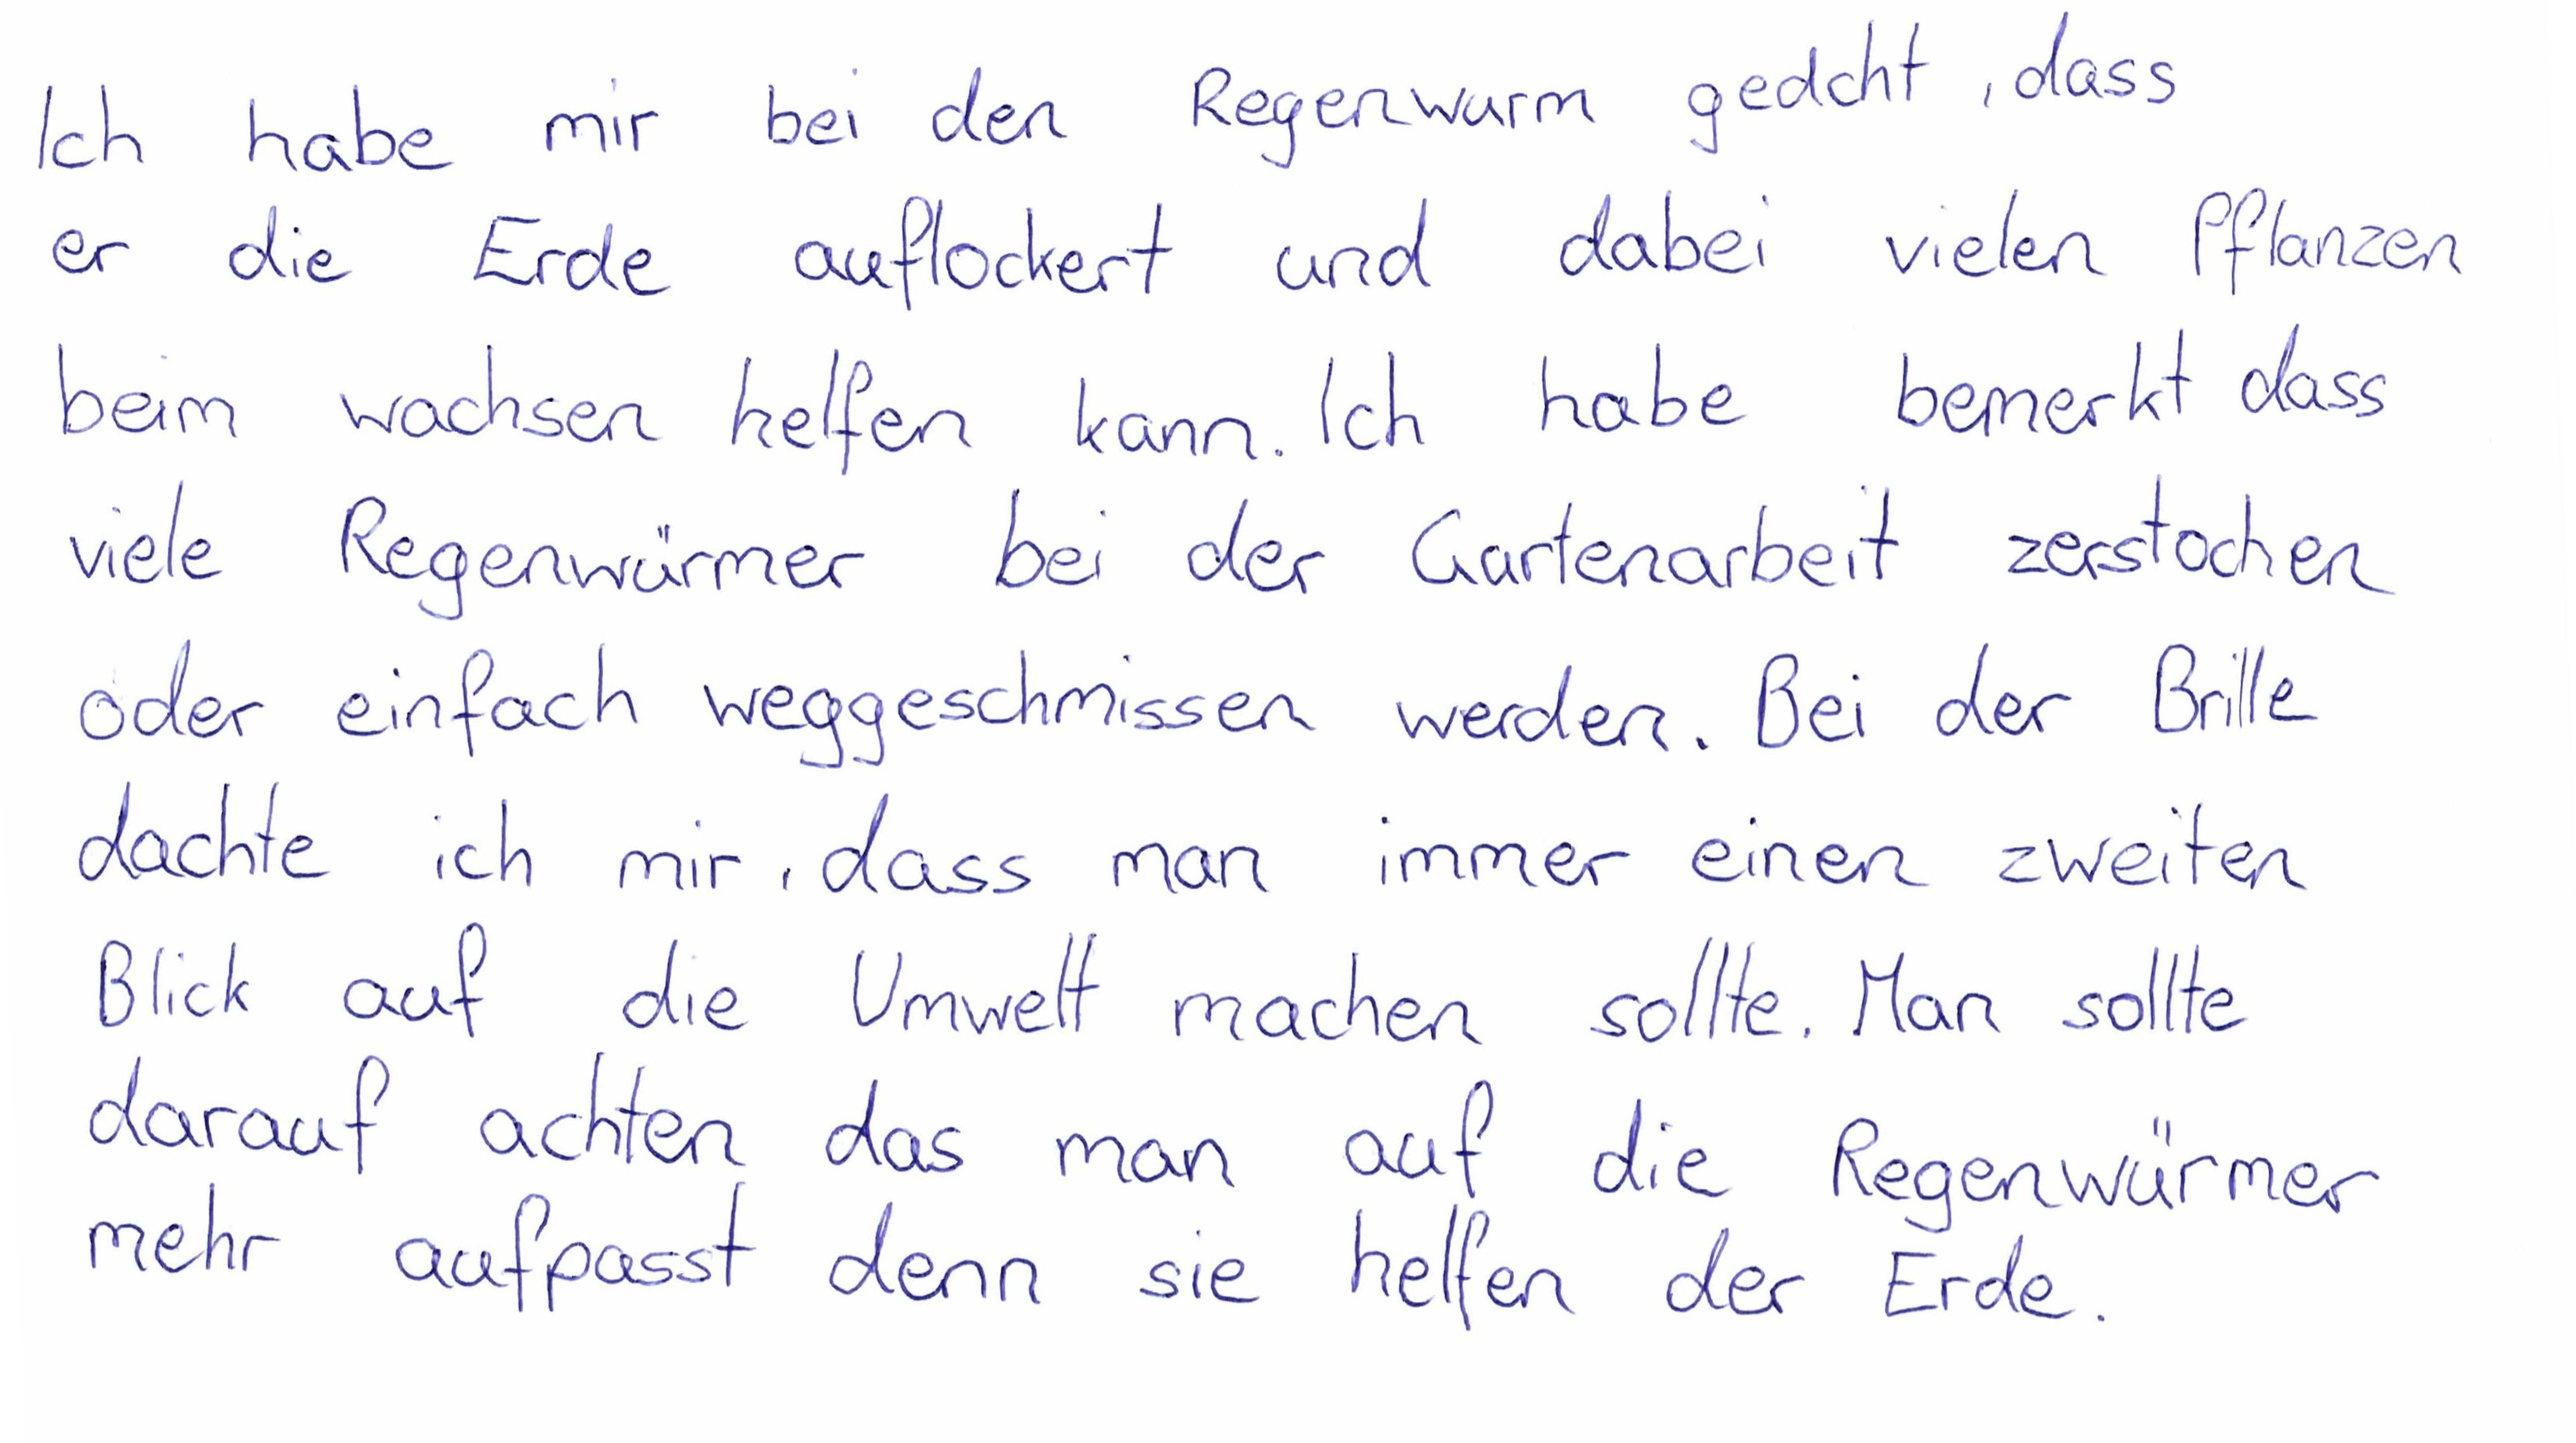 Ich habe mir bei den Regenwurm gedcht, dass
er die Erde auflockert und dabei vielen Pflanzen
beim wachsen helfen kann. Ich habe bemerkt dass
viele Regenwürmer bei der Gartenarbeit zerstochen
oder einfach weggeschmissen werden. Bei der Brille
dachte ich mir, dass man immer einen zweiten
Blick auf die Umwelt machen sollte. Man sollte
darauf achten das man auf die Regenwürmer
mehr aufpasst denn sie helfen der Erde.